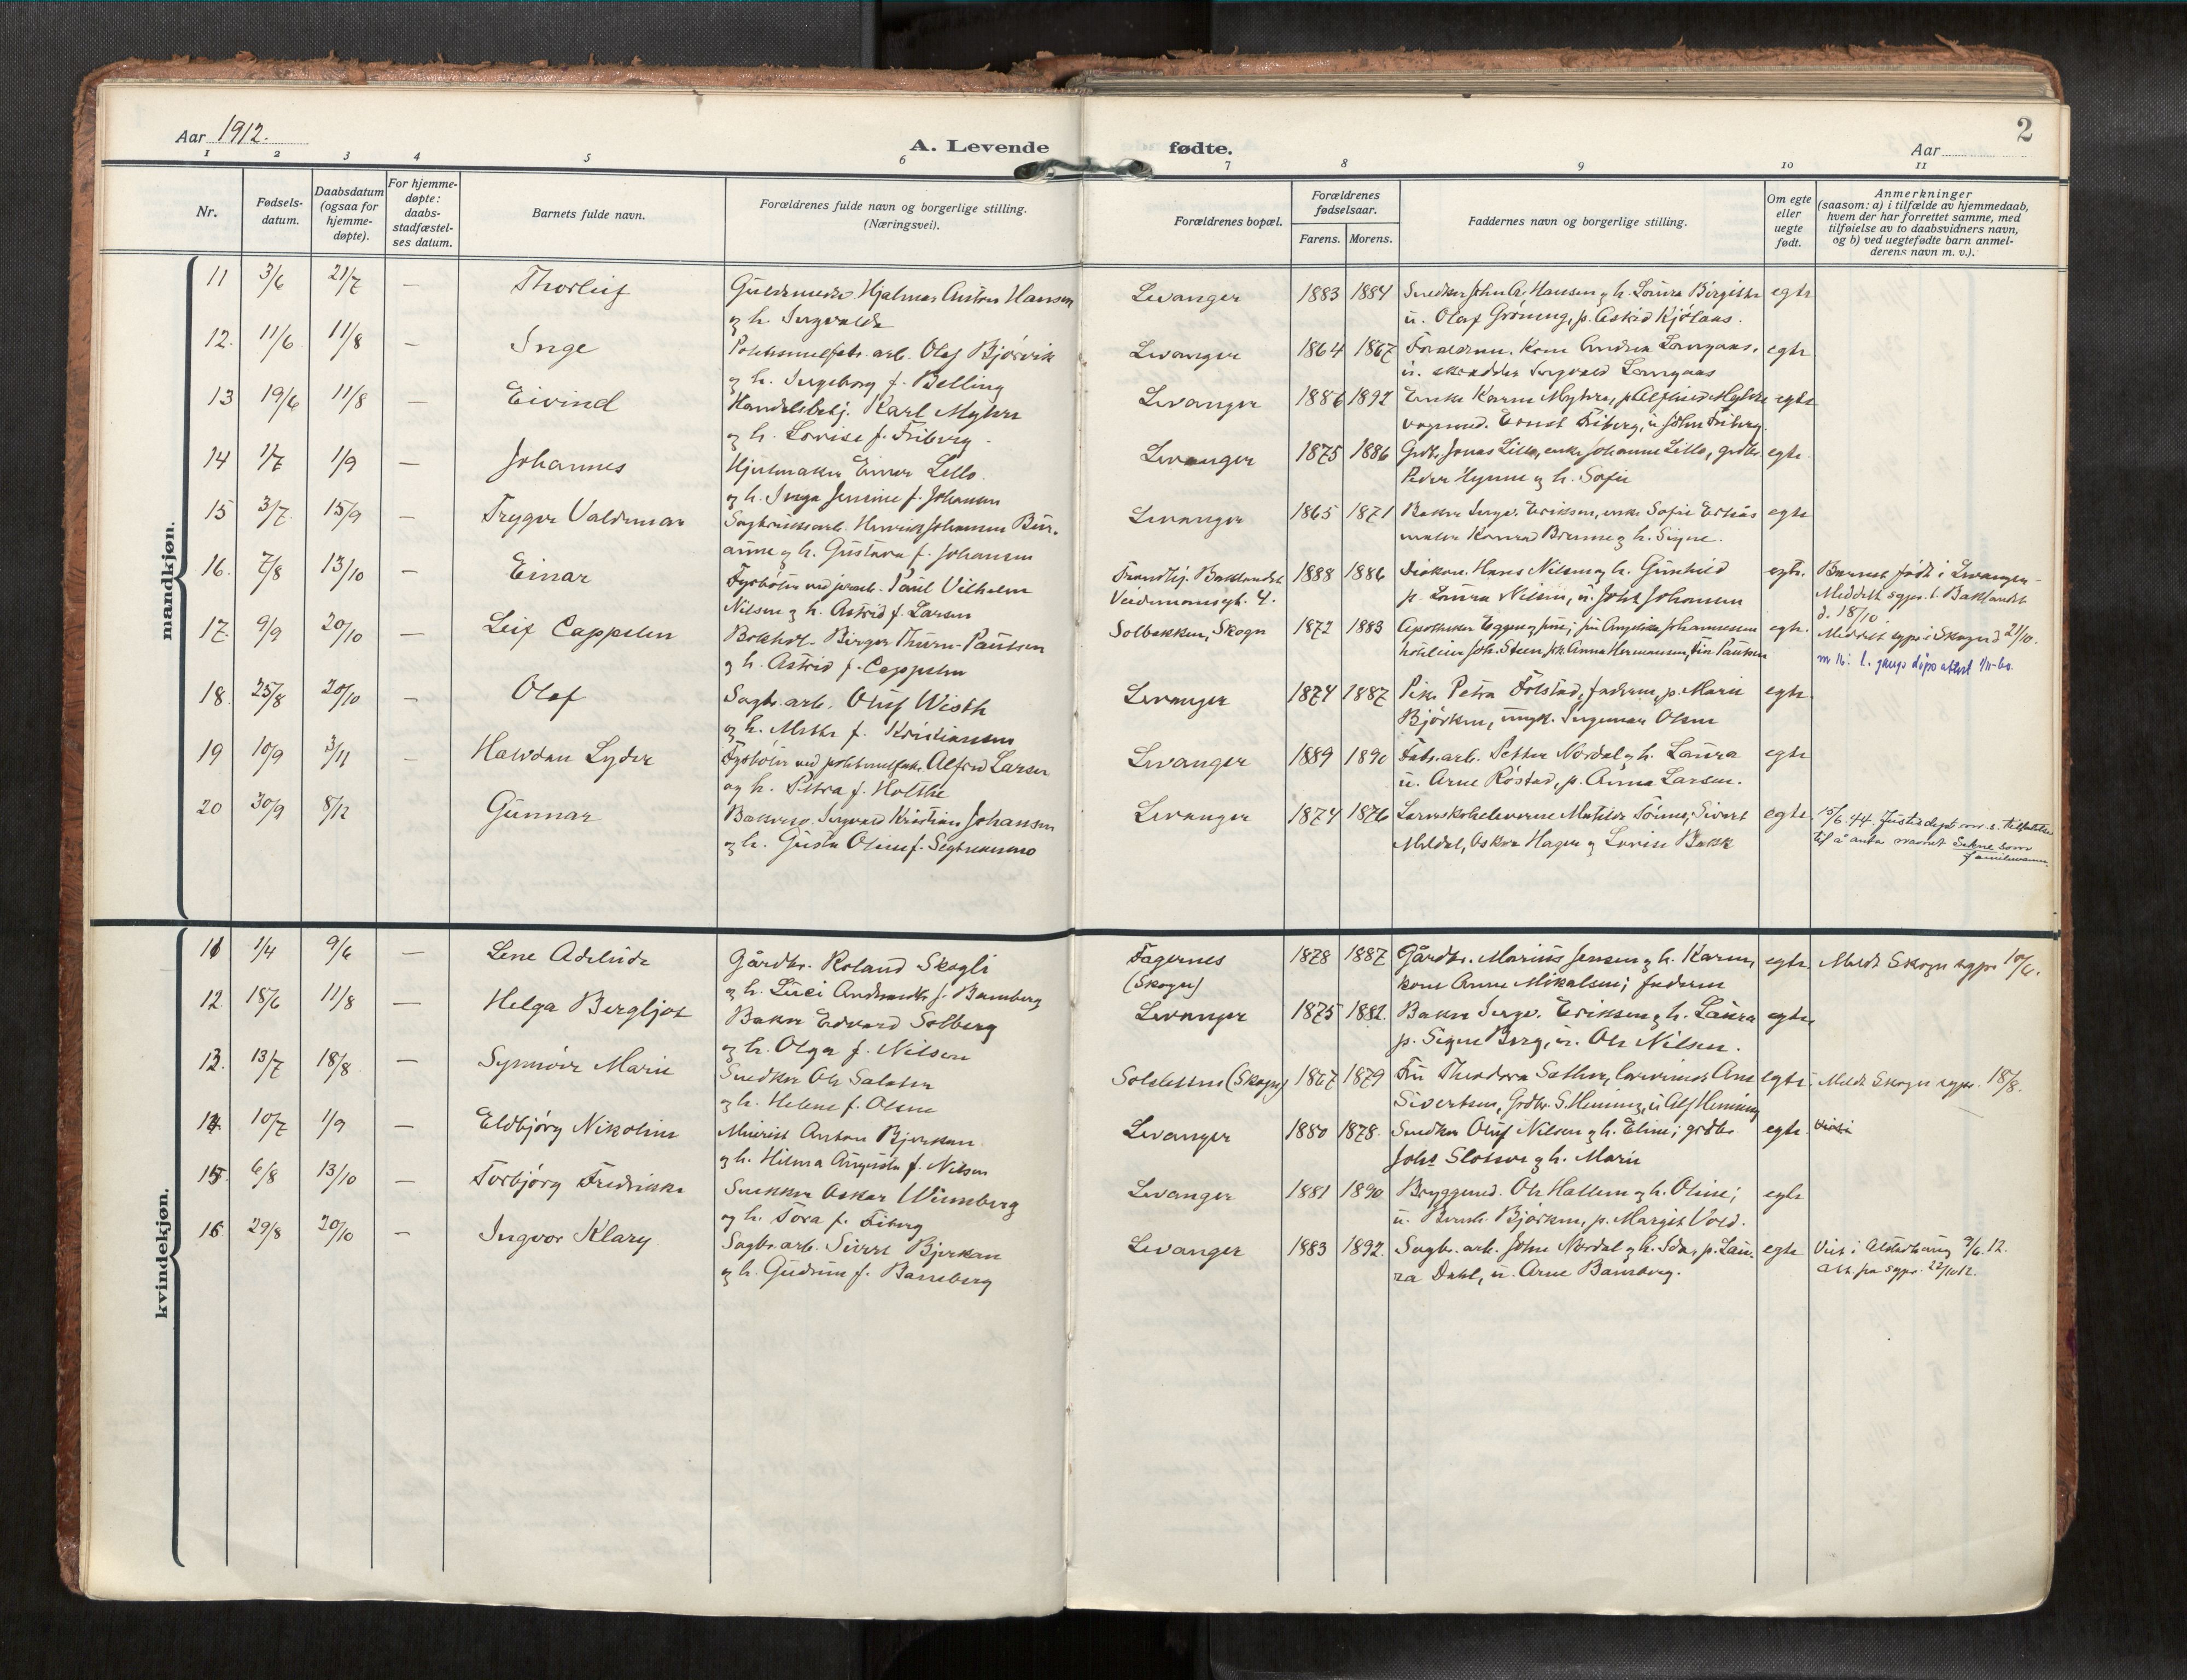 Aar 1912.
A. Levende
fødte.
2
Aar
1 2 3 4 5 6 7 8 9 10 11
Nr.
Fødsels-
datum.
Daabsdatum
(ogsaa for
hjemme-
døpte).
For hjemme-
døpte:
daabs-
stadfæstel-
ses datum.
Barnets fulde navn.
Forældrenes fulde navn og borgerlige stilling.
(Næringsvei).
Forældrenes bopæl.
Forældrenes
fødselsaar.
Farens. Morens.
Faddernes navn og borgerlige stilling.
Om egte
eller
uegte
født.
Anmerkninger
(saasom: a) i tilfælde av hjemmedaab,
hvem der har forrettet samme, med
tilføielse av to daabsvidners navn,
og b) ved uegtefødte barn anmel-
derens navn m. v.).
mandkjøn.
11 3/6 21/7 — Thorleif Guldsmed Hjalmar Anton Hansen Levanger 1883 1884 Snedker John A. Hansen og h. Laura Birgitte egte
og h. Ingvalda u. Olaf Gröning, p. Astrid Kjölaas.
12. 11/6 11/8 — Inge arb. Olaf Bjørvik Levanger 1864 1867 Forældrene. Kone Andrea Langaas, egte
og h. Ingeborg f. Belling u. skrædder Ingvald Langaas
13 19/6 11/8 — Eivind Handelsbetj. Karl Myhre Levanger 1886 1892 Enke Karen Myhre, p. Alfhild Myhre egte
og h. Lovise f. Friberg. vognmd. Ernst Friberg, u. John Friberg.
14 1/7 1/9 — Johannes Hjulmaker Einar Lillo. Levanger 1875 1886 Grdbr. Jonas Lillo, enke Johanne Lillo, grdbr. egte.
og h. Inga Jensine f. Johansen Peder Hynne og h. Sofie
15 3/7. 15/9 — Trygve Valdemar Sagbruksarb. Henrik Johansen Bur- Levanger 1865 1871 Baker Ingv. Eriksen, enke Sofie egte
aune og h. Gustava f. Johansen maler Konrad Brenne og h. Signe.
16. 7/8 13/10 — Einar Fyrbøter ved Paul Vilhelm Trondhj. Baklandet 1888 1886 Diakon. Hans Nilsen og h. Gunhild egte. Barnet født i Levanger—
Nilsen og h. Astrid f. Larsen 4. p. Laura Nilsen, u. Johs Johansen Meddelt sgpr. t. Baklandet
d. 18/10.
17. 9/9 20/10 — Leif Cappelen Bokhol. Birger Thurn-Paulsen Solbakken, Skogn 1872 1883 Apotheker Eggen og frue; frk Angelica Johannessen egte. Meddelt sgpr. i Skogn d 21/10.
og h. Astrid f. Cappelen Joh. Steen frk Anna Hermansen, Fin Paulsen nr 16: 1. gangs dåpsattest
18. 25/8 20/10 — Olaf Sagbr. arb. Oluf Wisth Levanger 1874 1887 Pike Petra Folstad, faderen, p. Marie egte
og h. Mette f. Kristiansen Björken, ungk. Ingemar Olsen
19 10/9 3/11 — Halvdan Lyder Fyrbøter ved Alfred Larsen Levanger 1889 1890 Fabr.arb. Petter Nordal og h. Laura egte
og h. Petra f. Holthe u. Arne Röstad, p. Anna Larsen.
20 30/9 8/12 Gunnar Ingvald Kristian Johansen Levanger 1874 1876 Lærerskoleeleverne Matilde Sivert egte 15/6.44. Justisdept.
og h. Gusta Oline f. Segtnanmo Meldal, Oskar Hagen og Lovise Bakk til å anta navnet Sekne som
familienavn.
kvindekjøn.
11 1/4 9/6 — Lene Adelude Gårdbr. Roland Skogli Fagernes 1878 1887 Gårdbr. Marius Jensen og h. Karen, egte Meldt Skogn sgpr. 10/6.
og h. Luci f. Bamberg (Skogn) kone Anne Mikalsen; faderen
12. 18/6 11/8 — Helga Bergljot Baker Edvard Solberg Levanger 1875 1882. Baker Ingv. Eriksen og h. Laura egte
og h. Olga f. Nilsen p. Signe Berg, u. Ole Nilsen.
13. 13/7 18/8 — Synnöve Marie Snedker Ole Salater (Skogn) 1867 1879 Fru Theodora Sæther, Ane egte Meldt Skogn sgpr. 18/8.
og h. Helene f. Olsen Sivertsen, Grdbr. S. Heming, u Alf Heming
14. 10/7 1/9 — Eldbjörg Nikoline Anton Bjerkan Levanger 1880 1878. Snedker Oluf Nilsen og h. Eline; grdbr. egte.
og h. Hilma Augusta f. Nilsen Johs Slotsve og h. Marie
15. 6/8 13/10 — Torbjörg Fredrikke Snekker Oskar Wennberg Levanger 1881 1890 Bryggemd. Ole Hallem og h. Oline; egte
og h. Tora f. Fiberg u. Bernh. Björken, p. Margit Vold.
16. 29/8 20/10 — Ingvor Klary Sagbr. arb. Sivert Bjerkan Levanger 1883 1892 Sagbr. arb. John Nordal og h. Ida, p. Lau- egte Viet i Alstadhaug 9/6.12.
og h. Gudrun f. Bamberg ra Dahl, u. Arne Bamberg. Att. fra sgpr. 22/10 12.